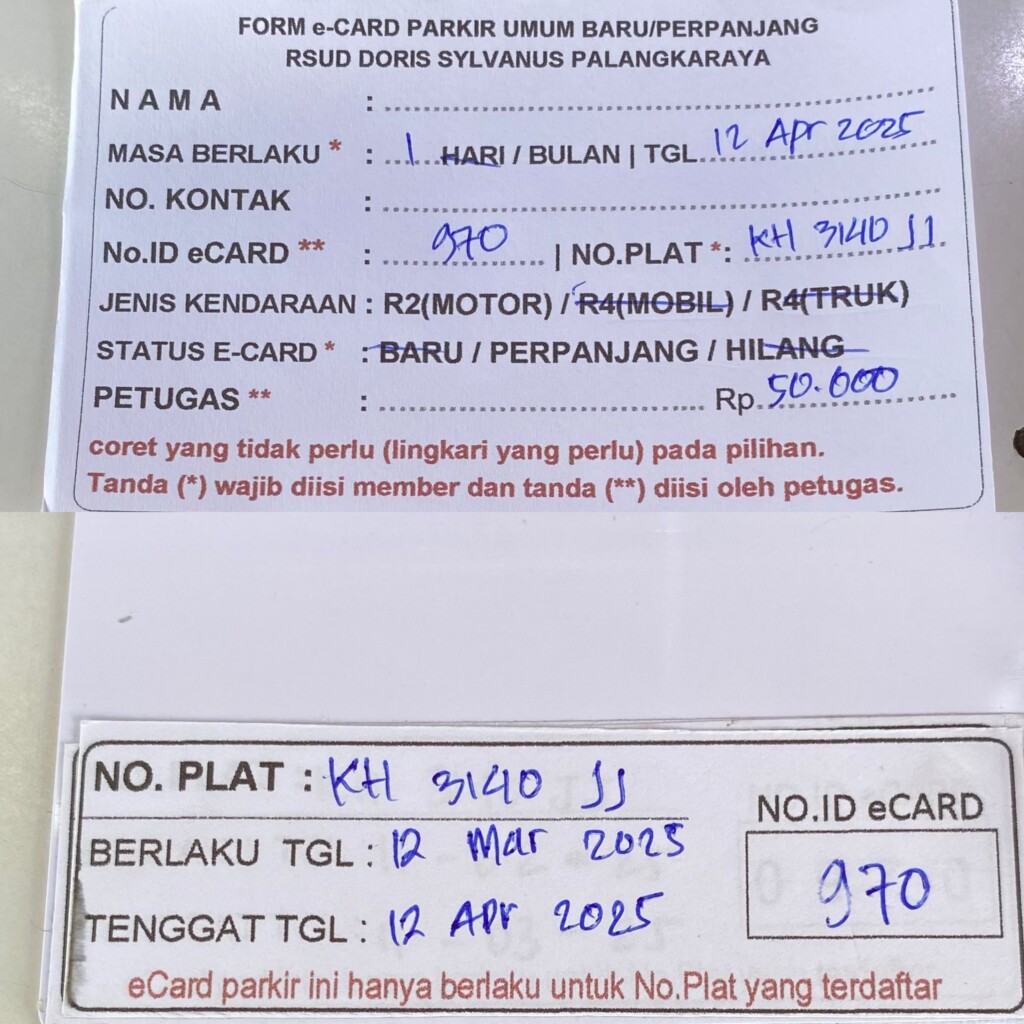 FORM e-CARD PARKIR UMUM BARU/PERPANJANG
RSUD DORIS SYLVANUS PALANGKARAYA
N A M A :
MASA BERLAKU * : 1 HARI / BULAN | TGL. 12 Apr 2025
NO. KONTAK :
No.ID eCARD ** : 970 | NO.PLAT *: KH 3140 JJ
JENIS KENDARAAN : R2(MOTOR) / R4(MOBIL) / R4(TRUK)
STATUS E-CARD * : BARU / PERPANJANG / HILANG
PETUGAS ** : Rp. 50.000
coret yang tidak perlu (lingkari yang perlu) pada pilihan.
Tanda (*) wajib diisi member dan tanda (**) diisi oleh petugas.
NO. PLAT : KH 3140 JJ
BERLAKU TGL : 12 Mar 2025
TENGGAT TGL : 12 Apr 2025
NO.ID eCARD
970
eCard parkir ini hanya berlaku untuk No.Plat yang terdaftar